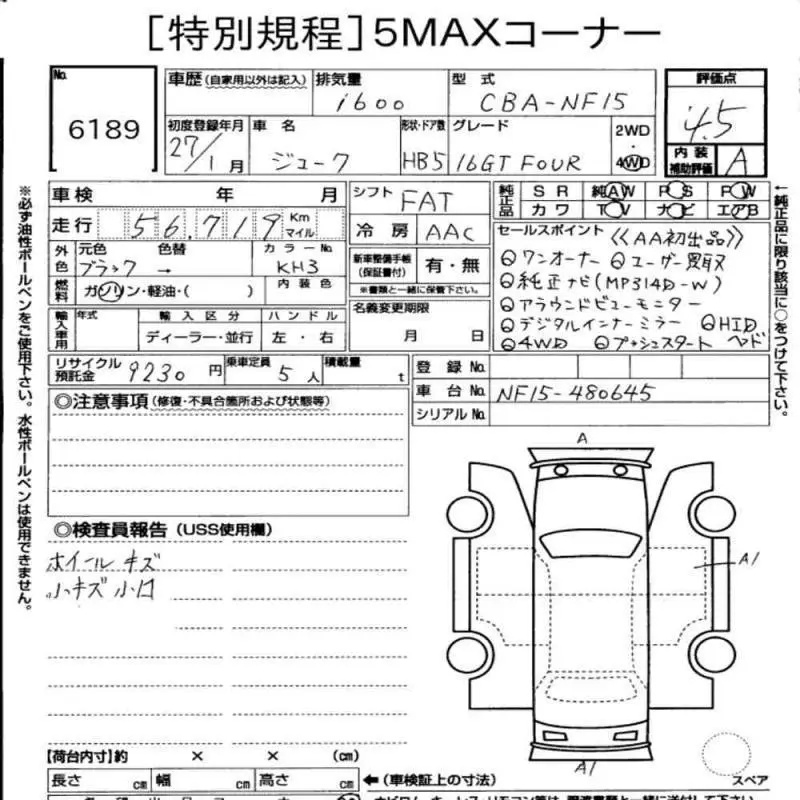 [特別規程]5MAXコーナー
No. 6189
車歴(自家用以外は記入) 排気量 1600 型式 CBA-NF15 評価点 4.5
初度登録年月 27/1月 車名 ジューク 形状・ドア数 HB5 グレード 16GT FOUR 2WD 4WD 内装補助評価 A
車検 年 月 シフト FAT 純正品 SR 純AW PS PW
走行 56,719 Km マイル 冷房 AAC カワ TV ナビ エアB
外色 元色 ブラック 色替 → カラーNo. KH3 新車整備手帳(保証書付) 有・無
※書類と一緒に保管下さい。
燃料 ガソリン・軽油・( ) 内装色 名義変更期限 月 日
輸入車用 年式 輸入区分 ディーラー・並行 ハンドル 左・右
セールスポイント 《AA初出品》
◎ワンオーナー ◎ユーザー買取
◎純正ナビ(MP314D-W)
◎アラウンドビューモニター
◎デジタルインナーミラー ◎HIDヘッド
◎4WD ◎プッシュスタート
リサイクル預託金 9230円 乗車定員 5人 積載量 t
登録No.
車台No. NF15-480645
シリアルNo.
◎注意事項(修復・不具合箇所および状態等)
◎検査員報告(USS使用欄)
ホイールキズ
小キズ小凹
A
A1
A1
スペア
【荷台内寸】約 × × (cm)
長さ cm 幅 cm 高さ cm ←(車検証上の寸法)
※必ず油性ボールペンをご使用下さい。水性ボールペンは使用できません。
←純正品に限り該当に○をつけて下さい。